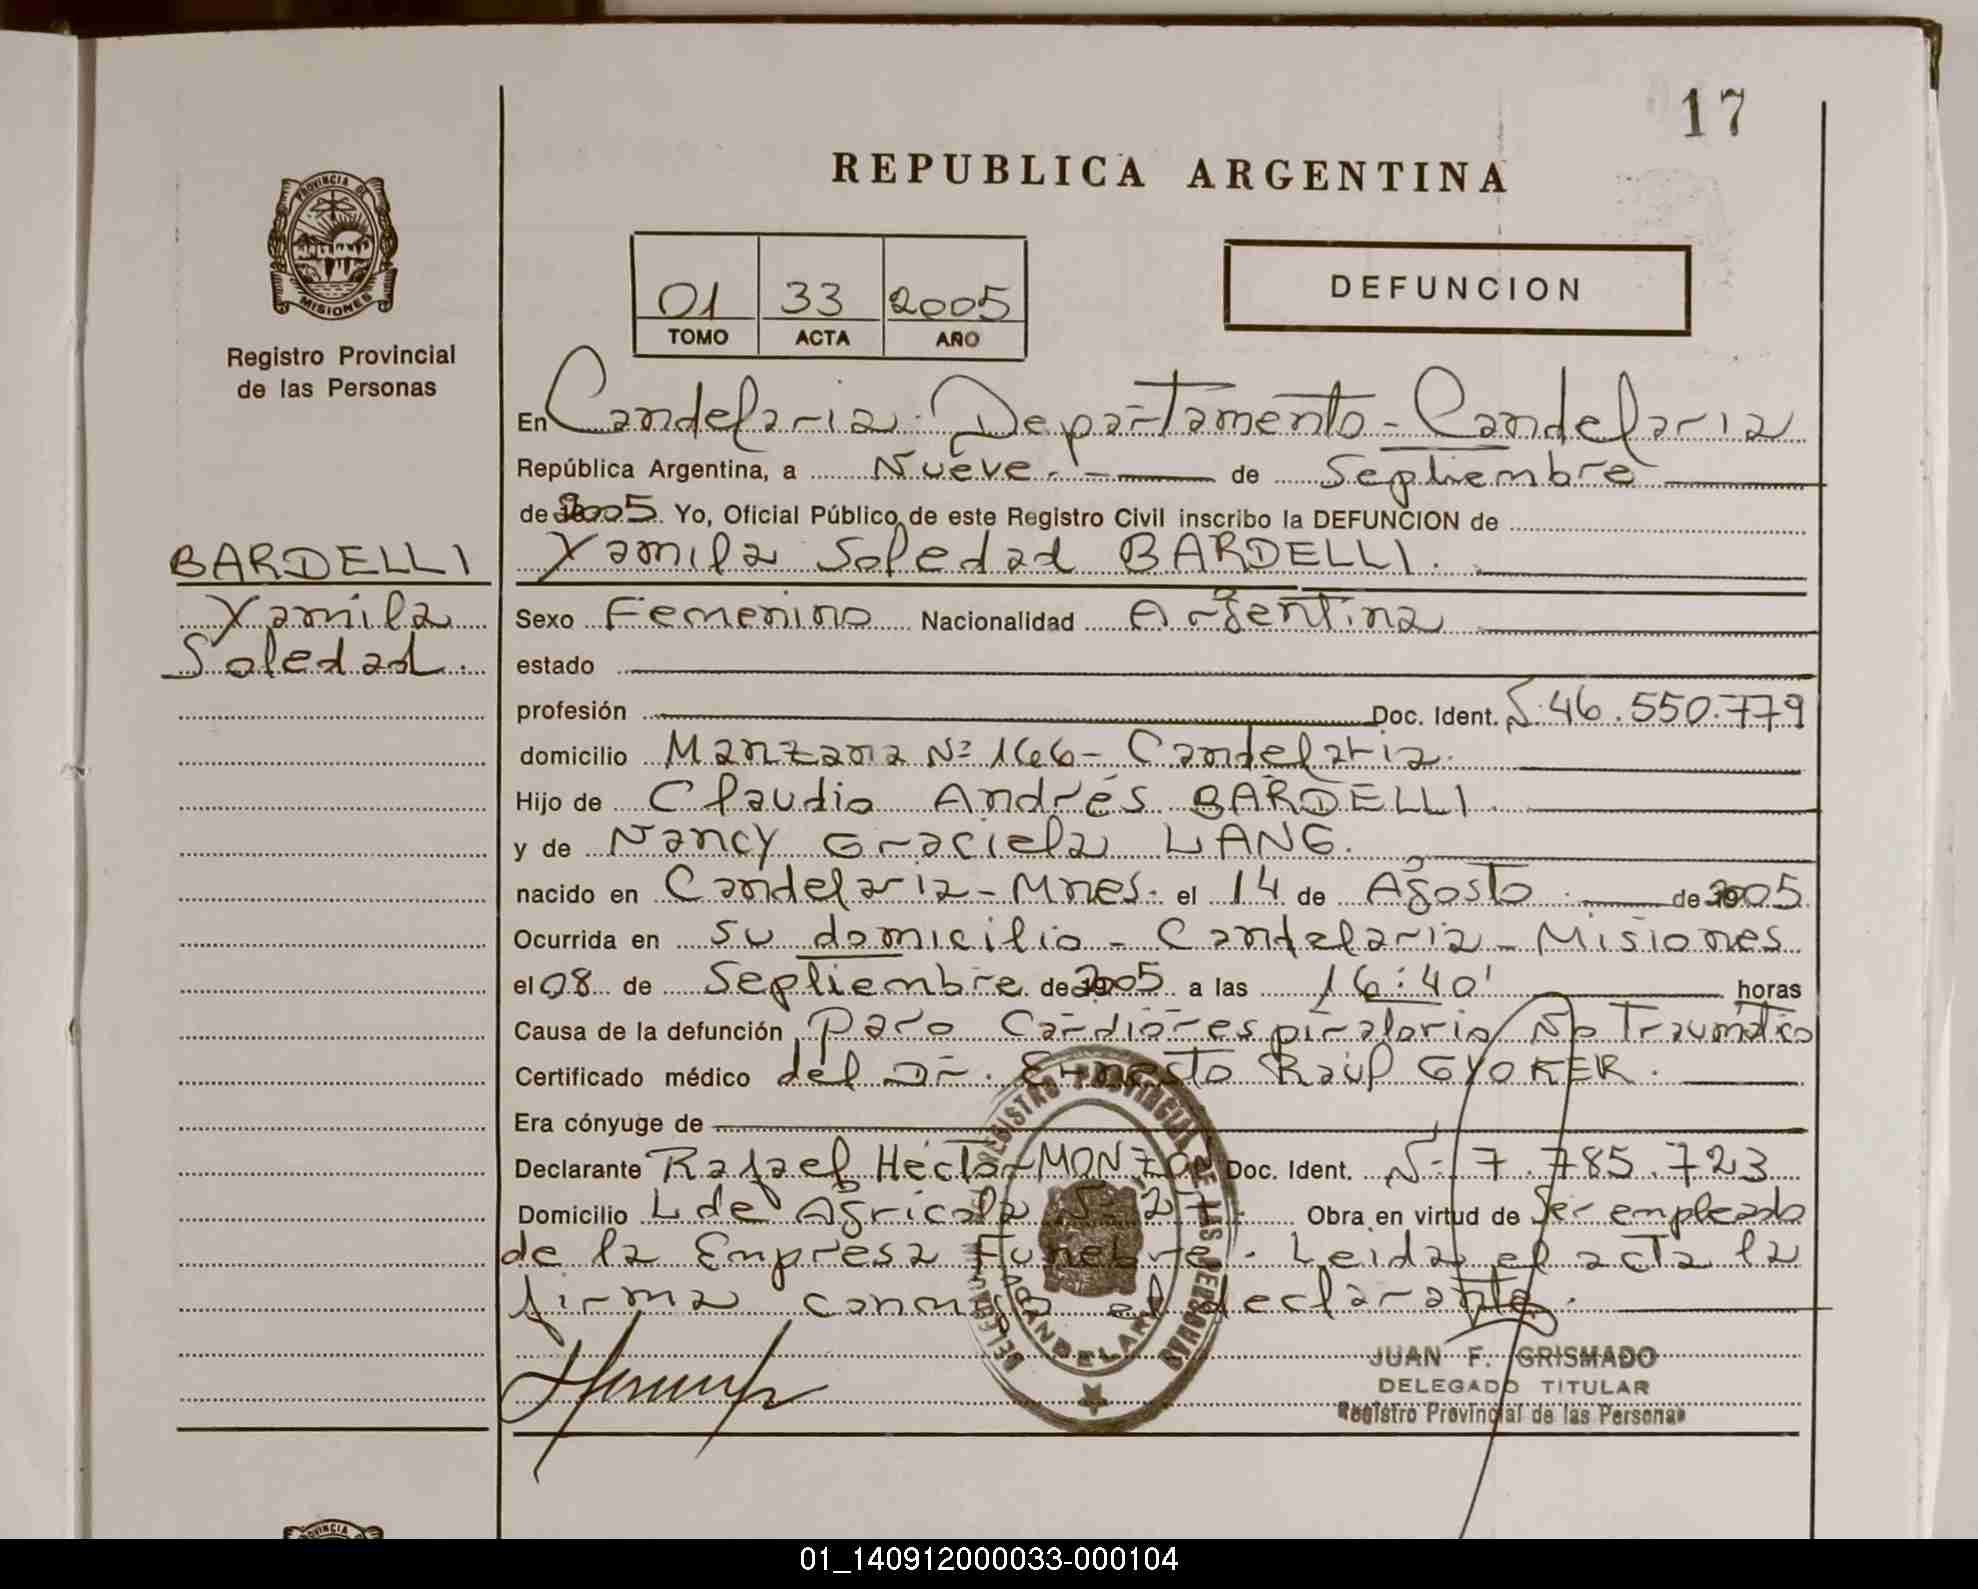 17
REPUBLICA ARGENTINA
PROVINCIA DE
MISIONES
Registro Provincial
de las Personas
01 33 2005
TOMO ACTA AÑO
DEFUNCION
En Candelaria - Departamento - Candelaria
República Argentina, a Nueve de Septiembre
de 2005 Yo, Oficial Público de este Registro Civil inscribo la DEFUNCION de
BARDELLI
Yamila Soledad BARDELLI.
Yamila
Soledad.
Sexo Femenino Nacionalidad Argentina
estado
profesión Doc. Ident. 46.550.779
domicilio Manzana Nº 166 - Candelaria.
Hijo de Claudio Andrés BARDELLI.
y de Nancy Graciela LANG.
nacido en Candelaria - Mnes. el 14 de Agosto de 2005.
Ocurrida en su domicilio - Candelaria - Misiones
el 08 de Septiembre de 2005 a las 16:40' horas
Causa de la defunción Paro Cardiorespiratorio No Traumático
Certificado médico del Dr. Ernesto Raúl GYOKER.
Era cónyuge de
Declarante Rafael Héctor MONZON Doc. Ident. 7.785.723
Domicilio L de Agricola Obra en virtud de Ser empleado
de la Empresa Funebre. Leida el acta la
firma conmigo el declarante.
REGISTRO PROVINCIAL DE LAS PERSONAS
CANDELARIA
JUAN F. GRISMADO
DELEGADO TITULAR
Registro Provincial de las Personas
PROVINCIA
01_140912000033-000104